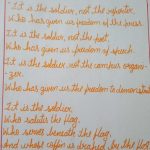 It is the soldier, not the reporter,
Who has given us freedom of the press.
It is the soldier, not the poet,
Who has given us freedom of speech.
It is the soldier, not the campus organi-
zer,
Who has given us the freedom to demonstrate
It is the soldier,
Who salutes the flag,
Who serves beneath the flag,
And whose coffin is draped by the flag